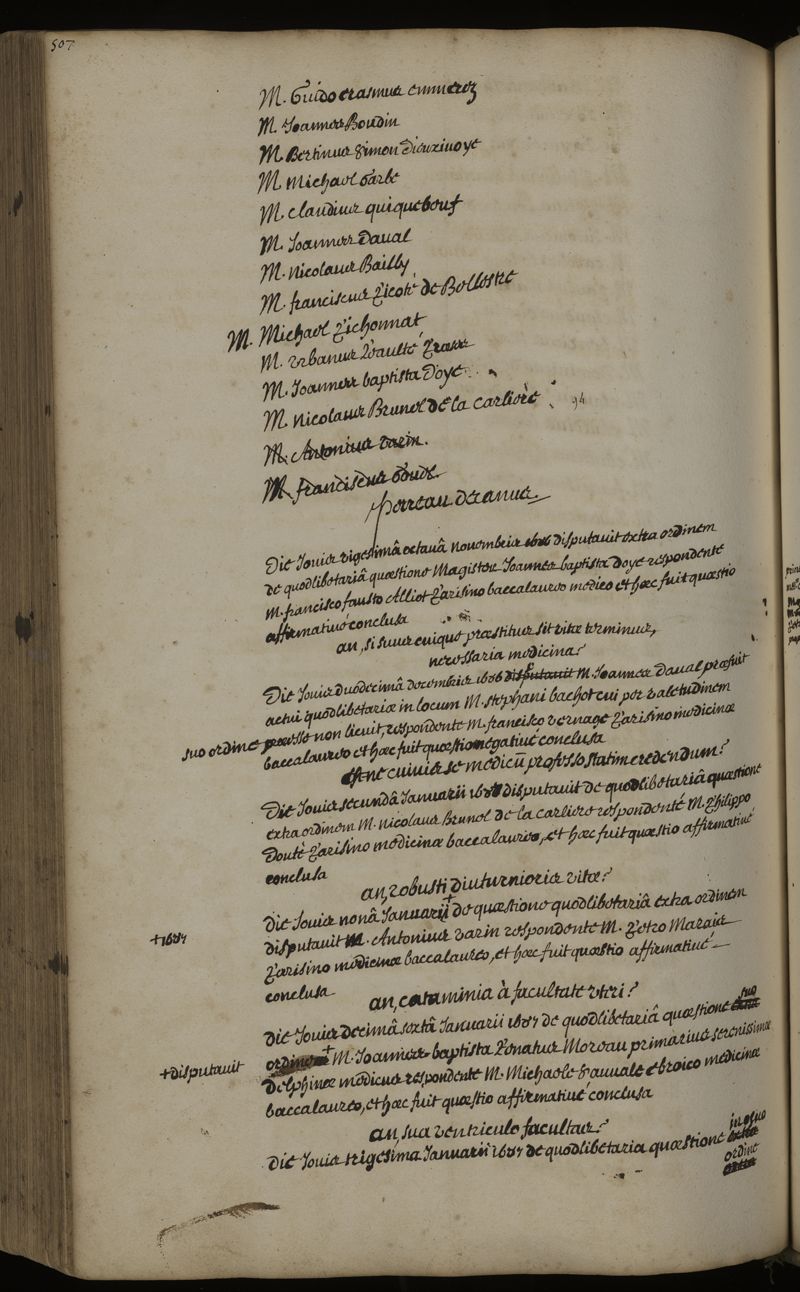 507
M. Guido erasmus emmerez
M. Joannes Boudin
M. Bertinus Simon dieuxivoye
M. Michael Garbe
M. claudius quiquebouf
M. Joannes Daual
M. Nicolaus Bailly
M. franciscus Picoté de Bellestre
M. Michael Pichonnat
M. vrbanus
M. Joannes baptista Doye
M. Nicolaus Brunel de la carliere 94
M. Antonius varin.
M. franciscus
decanus
Die Jouis vigesimâ octauâ Nouembris 1686 disputauit extra ordinem
de quodlibetariâ quæstione Magister Joannes baptista Doye respondente
M. francisco fausto Alliot Parisino baccalaureo medico et hæc fuit quæstio
affirmatiué conclusa
an, si suus cuique præstitus sit vitæ terminus,
necessaria medicina?
Die Jouis duodecimâ decembris 1686 disputauit M. Joannes Daual præfuit
actui quodlibetariæ in locum M. stephani bachot cui per valetudinem
suo ordine præesse non licuit, respondente M. francisco vernage Parisino medicinæ
baccalaureo et hæc fuit quæstio negatiué conclusa
est ne cuiuis se medicū professo statim credendum?
Die Jouis secundâ Januarii 1687 disputauit de quodlibetariâ quæstione
extra ordinem M. Nicolaus Brunel de la carliere respondenté M. Philippo
Douté Parisino medicinæ baccalaureo, et hæc fuit quæstio affirmatiué
conclusa
an, robusti diuturnioris vitæ?
Die Jouis nonâ Januarii + de quæstione quodlibetariâ extra ordinem
+1687
disputauit M. Antonius varin respondente M. Petro
Parisino medicinæ baccalaureo, et hæc fuit quæstio affirmatiué
conclusa
an, cataminia à facultate vteri?
Die Jouis decimâ sextâ Januarii 1687 de quodlibetariâ quæstione extra suo
ordinem + M. Joannes baptista Donatus Moreau primarius serenissimæ
+disputauit
Delphinæ medicus respondente M. Michaele ebroico medicinæ
baccalaureo, et hæc fuit quæstio affirmatiué conclusa
an, sua ventriculo facultas?
Die Jouis trigesima Januarii 1687 de quodlibetaria quæstione extra
ordine